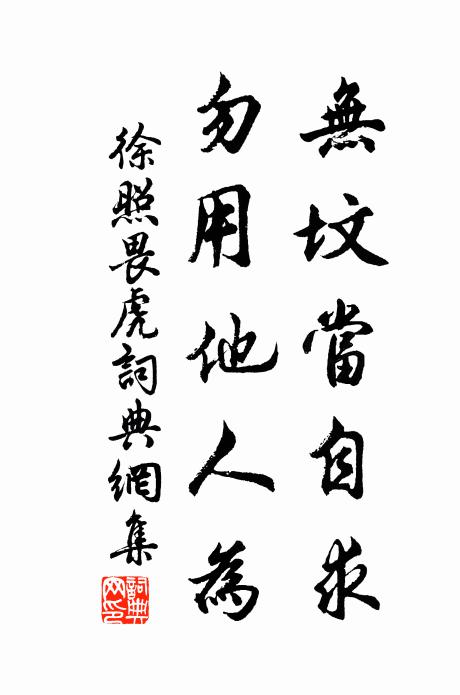 無坟當自求
勿用他人為
徐照畏虎詞典網集
詞典网印